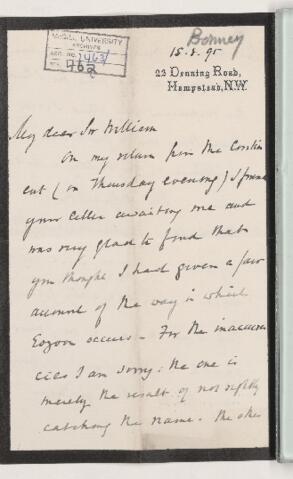 Bonney
15.8.95
McGILL UNIVERSITY
ARCHIVES
ACC. NO. 1463/
762
23 Denning Road,
Hampstead, N.W.
My dear Sir William
On my return from the Contin
ent (on Thursday evening) I found
your letter awaiting me and
was very glad to find that
you thought I had given a fair
account of the way in which
Eozoon occurs – For the inaccura
cies I am sorry: the one is
merely the result of not rightly
catching the name. The other